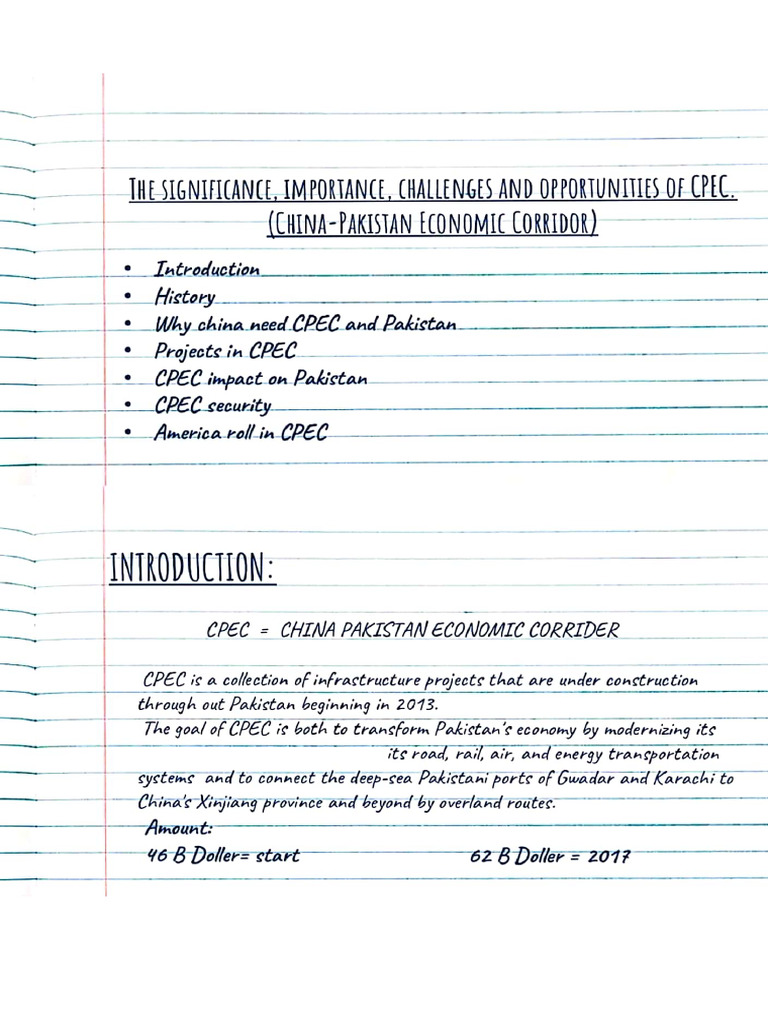 The significance, importance, challenges and opportunities of CPEC.
(China-Pakistan Economic Corridor)
• Introduction
• History
• Why china need CPEC and Pakistan
• Projects in CPEC
• CPEC impact on Pakistan
• CPEC security
• America roll in CPEC
INTRODUCTION:
CPEC = CHINA PAKISTAN ECONOMIC CORRIDER
CPEC is a collection of infrastructure projects that are under construction
through out Pakistan beginning in 2013.
The goal of CPEC is both to transform Pakistan's economy by modernizing its
its road, rail, air, and energy transportation
systems and to connect the deep-sea Pakistani ports of Gwadar and Karachi to
China's Xinjiang province and beyond by overland routes.
Amount:
46 B Doller= start 62 B Doller = 2017